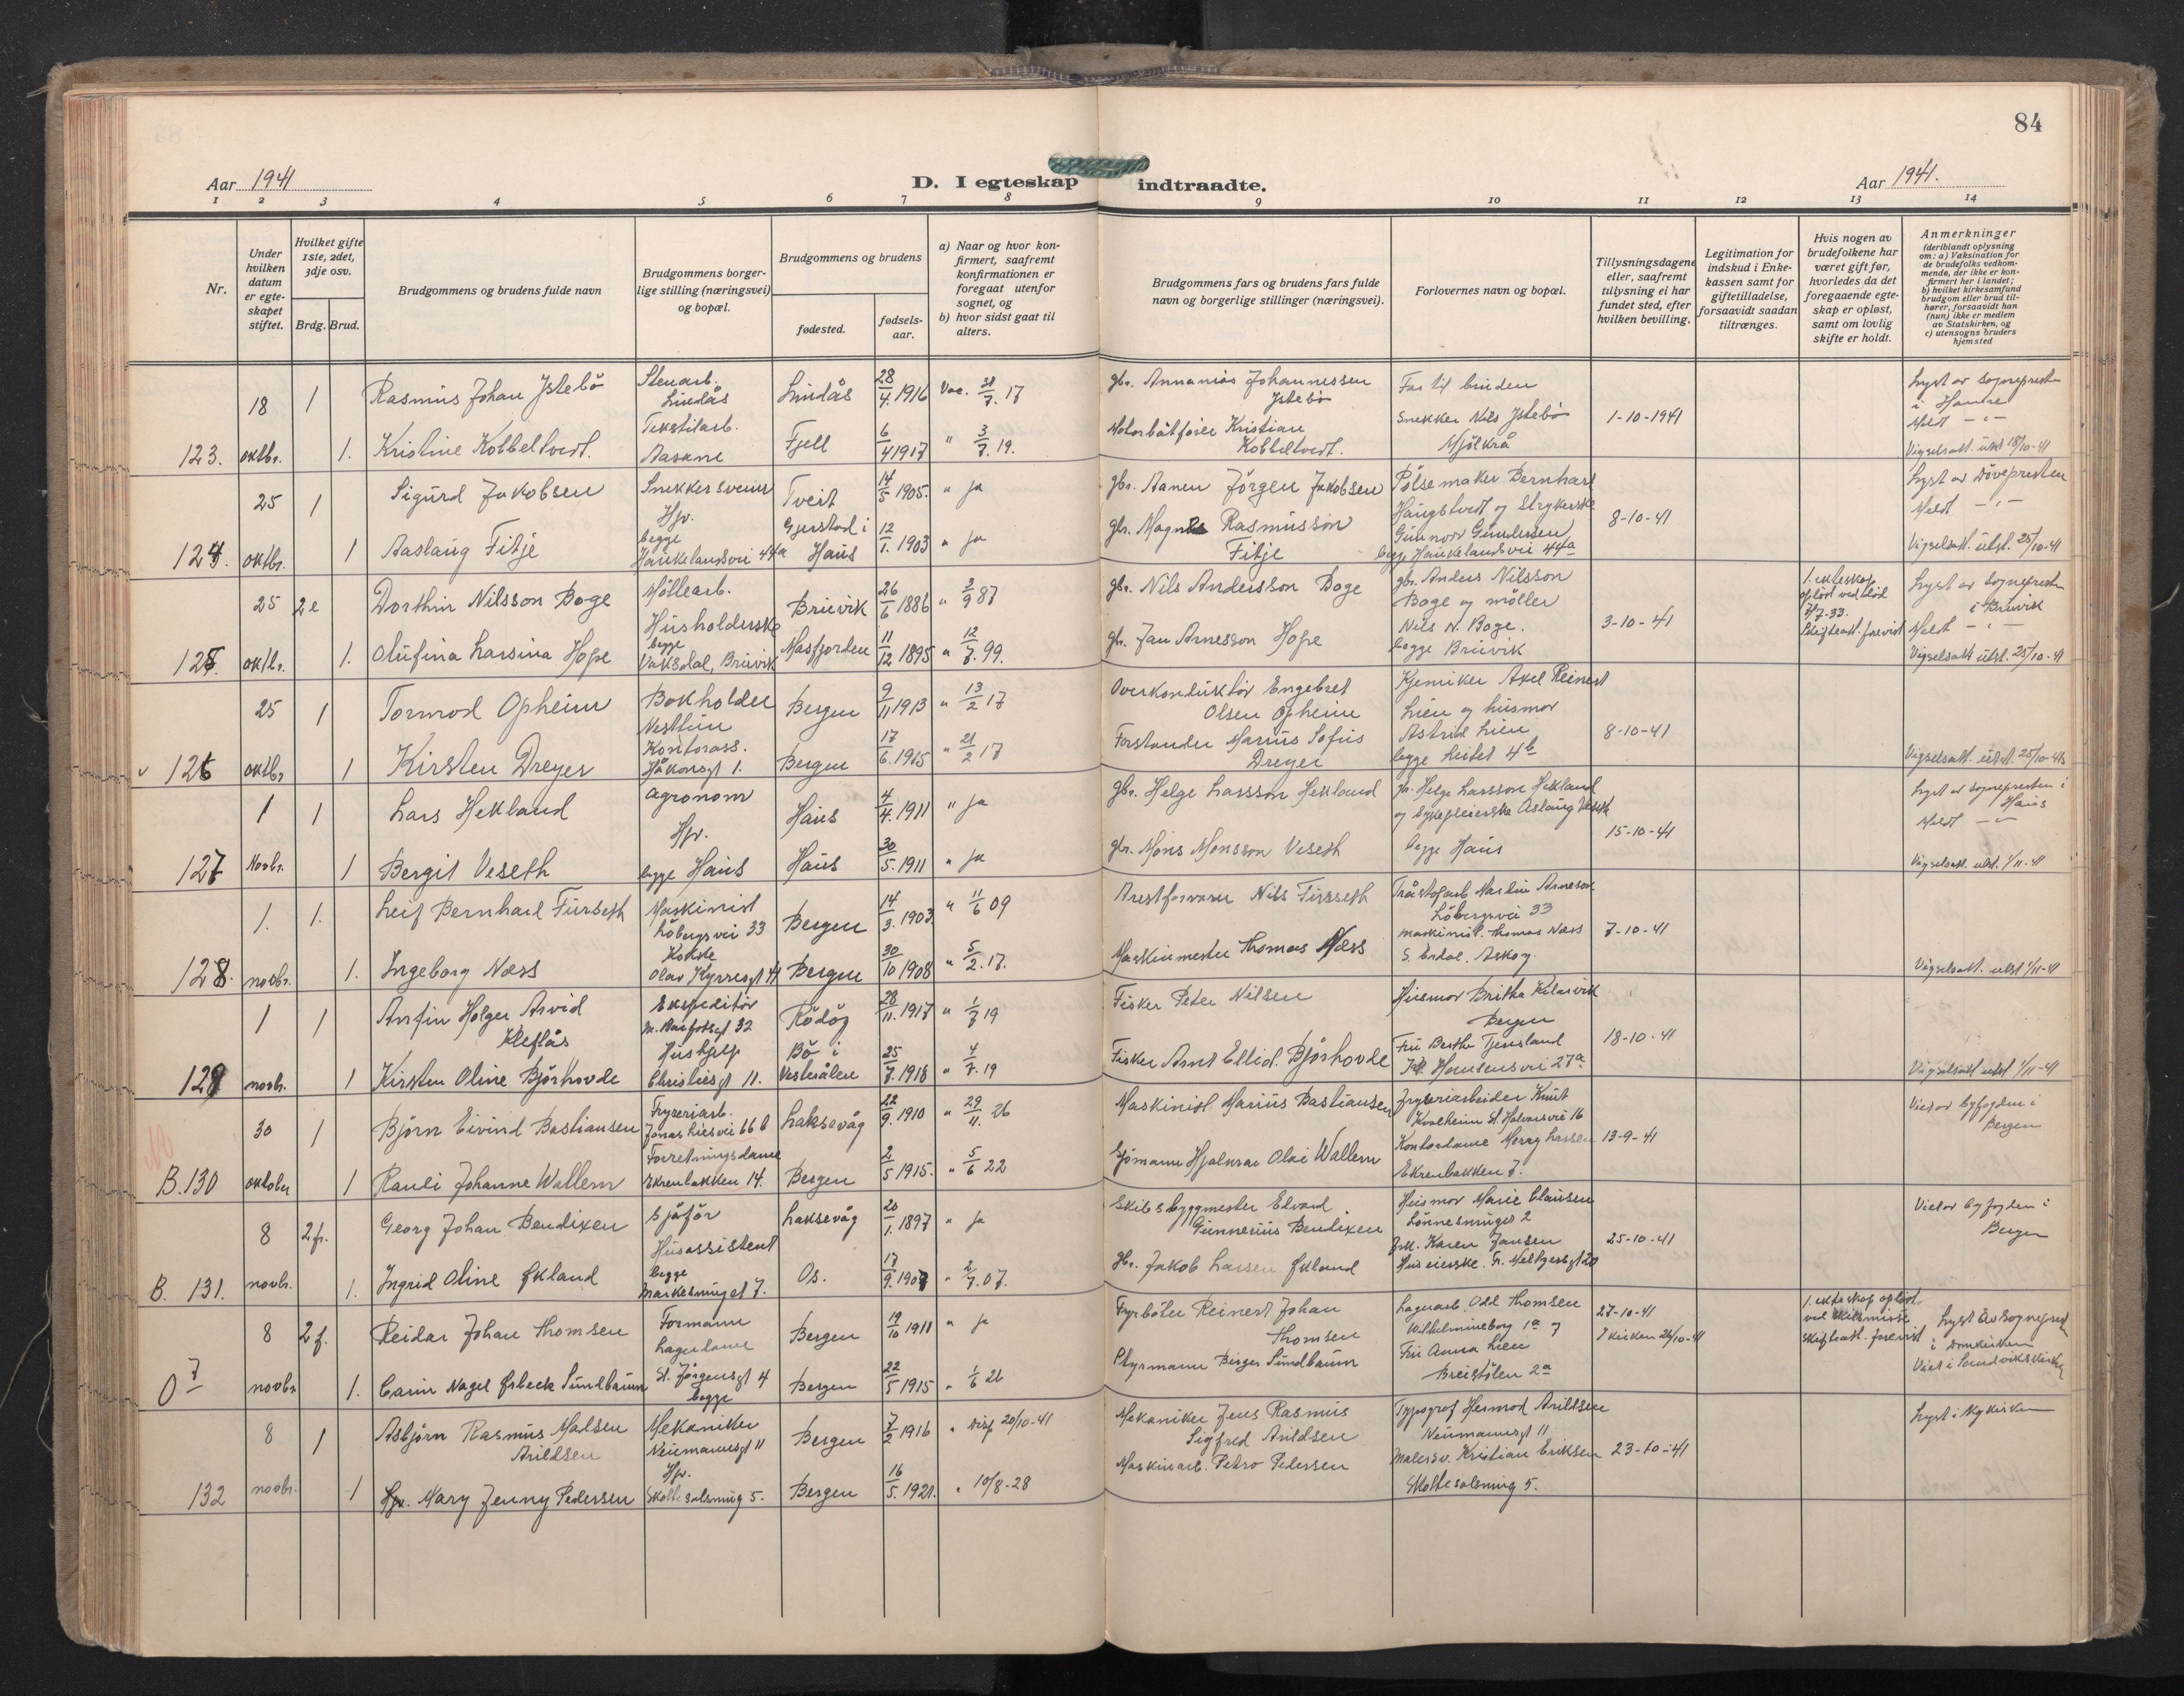 84
Aar 1941
D. I egteskap indtraadte.
Aar 1941.
1 2 3 4 5 6 7 8 9 10 11 12 13 14
Nr.
Under hvilken datum er egteskapet stiftet.
Hvilket gifte 1ste, 2det, 3dje osv.
Brdg. Brud.
Brudgommens og brudens fulde navn
Brudgommens borgerlige stilling (næringsvei) og bopæl.
Brudgommens og brudens
fødested.
fødselsaar.
a) Naar og hvor konfirmert, saafremt konfirmationen er foregaat utenfor sognet, og
b) hvor sidst gaat til alters.
Brudgommens fars og brudens fars fulde navn og borgerlige stillinger (næringsvei).
Forlovernes navn og bopæl.
Tillysningsdagene eller, saafremt tillysning ei har fundet sted, efter hvilken bevilling.
Legitimation for indskud i Enkekassen samt for giftetilladelse, forsaavidt saadan tiltrænges.
Hvis nogen av brudefolkene har været gift før, hvorledes da det foregaaende egteskap er opløst, samt om lovlig skifte er holdt.
Anmerkninger
(deriblandt oplysning om: a) Vaksination for de brudefolks vedkommende, der ikke er konfirmert her i landet;
b) hvilket kirkesamfund brudgom eller brud tilhører, forsaavidt han (hun) ikke er medlem av Statskirken, og
c) utensogns bruders hjemsted
18 1 Rasmus Johan Istebö Stenarb. Lindås Lindås 28/4 1916 Vac. 31/7. 17 gbr. Annanias Johannessen Istebö Far til bruden Lyst av sognepresten i Hamre
123. oktbr. 1. Kristine Kobbeltvedt. Tekstilarb. Aasane Fjell 6/4 1917 " 3/7. 19. Motorbåtfører Kristian Kobbeltvedt. Snekker Nils Istebö Mjölkrå 1-10-1941 Meldt - " - Vigselsatt. utst 18/10-41
25 1 Sigurd Jakobsen Snekkersvenn Tveit 14/5 1905. " ja gbr. Aanen Jörgen Jakobsen Pölsemaker Bernhard Haugstvedt og Strykerske Lyst av Dövepresten
124. oktbr. 1 Aaslaug Fitje Hpr. begge Haukelandsvei 44a Gjerstad i Haus 12/1. 1903 " ja gbr. Magnus Rasmusson Fitje Gunnvor Gundersen begge Haukelandsvei 44a 8-10-41 Meldt - " - Vigselsatt. utst. 25/10-41
25 2e Dorthin Nilsson Boge Möllearb. Bruvik 26/6 1886 " 2/9 87 gbr. Nils Andersson Boge gbr. Anders Nilsson Boge og möller 1. ekteskap oplöst ved död 7/7-33. Lyst av sognepresten i Bruvik
125. oktbr. 1. Olufina Larsina Hope Husholderske begge Vaksdal, Bruvik Masfjorden 11/12 1895 " 12/7. 99. gbr. Jan Arnesson Hope Nils N. Boge. begge Bruvik 3-10-41 Skifteatt. forevist Meldt - " - Vigselsatt utst. 25/10-41
25 1 Tormod Opheim Bokholder Nesttun Bergen 9/11 1913 " 13/2 17 Overkonduktör Engebret Olsen Opheim Kjemiker Axel Reinert Lien og husmor
126 oktbr 1 Kirsten Dreyer Kontorass. Håkonsgt 1. Bergen 17/6. 1915 " 21/2 17 Forstander Marius Sofus Dreyer Astrid Lien begge Leitet 4b 8-10-41 Vigselsatt. utst. 25/10-41
1 1 Lars Hekland Agronom Haus 4/4. 1911 " ja gbr. Helge Larsson Hekland gbr. Helge Larsson Hekland og Sykepleierske Aslaug Veseth Lyst av sognepresten i Haus
127 Novbr. 1 Bergit Veseth Hpr. begge Haus Haus 30/5. 1911 " ja gbr. Mons Monsson Veseth begge Haus 15-10-41 Meldt - " - Vigselsatt. utst. 1/11-41
1. 1. Leif Bernhard Furseth Maskinist Löbergsvei 33 Bergen 14/3. 1903. " 11/6 09 Arrestforvarer Nils Furseth Martin Arneson Löbergsvei 33
128. novbr. 1. Ingeborg Næss Kokke Olav Kyrresgt 41 Bergen 30/10 1908 " 5/2. 17. Maskinmester Thomas Næss maskinist. Thomas Næss S. Erdal. Asköy. 7-10-41 Vigselsatt. utst 1/11-41
1 1 Arnfin Holger Arvid Kleflås Ekspeditör M. Barfotsgt 32 Rödöy 28/11. 1917 " 1/7 19 Fisker Peter Nilsen Husmor Britha Bergen
129 novbr. 1 Kirsten Oline Björhovde Hushjelp Christiesgt 11. Bö i Vesterålen 25/7. 1918 " 4/7. 19 Fisker Arnt Ellid. Björhovde Fru Berthe Tjensland Hansensvei 27a 18-10-41 Vigselsatt utst 1/11-41
30 1 Björn Eivind Bastiansen Fryseriarb. Jonas Liesvei 66 b Laksevåg 22/9. 1910 " 29/11. 26 Maskinist Marius Bastiansen Fryseriarbeider Knut Kvalheim St. Halvarsvei 16 Viet av byfogden i Bergen
B. 130 oktober 1 Rauli Johanne Wallem Forretningsdame Ekrenbakken 14. Bergen 2/5 1915. " 5/6 22 Sjömann Hjalmar Olai Wallem Kontordame Merry Larsen Ekrenbakken 7. 13-9-41
8 2 fr. Georg Johan Bendixen Sjåför Laksevåg 20/1. 1897 " ja Skibsbyggmester Edvard Gunnerius Bendixen Husmor Marie Clausen Lönnesmuget 2 Viet av byfogden i Bergen
B. 131. novbr. 1. Ingrid Oline Økland Husassistent begge Markesmuget 7. Os. 17/9. 1907 " 2/7. 07. gbr. Jakob Larsen Økland frk. Karen Jansen Huseierske. Fr. Meltzersgt 20 25-10-41
8 2 f. Reidar Johan Thomsen Formann Bergen 19/10 1911 " ja Fyrböter Reinert Johan Thomsen Lagerarb. Odd Thomsen Wilhelmineborg 1a og 27-10-41 I kirken 26/10-41 1. ekteskap oplöst ved skilsmisse Skifteatt. forevist Lyst av sognepresten i Domkirken
O 7 novbr 1. Carin Nagel Ørbeck Sundbaum Lagerdame St. Jörgensgt 4 begge Bergen 22/5 1915 " 1/6 26 Styrmann Birger Sundbaum Fru Anna Lien Breistölen 2a Viet i Sandvikskirken
8 1 Asbjörn Rasmus Madsen Arildsen Mekaniker Neumannsgt 11 Bergen 7/2 1916 " Disp 20/10-41 Mekaniker Jens Rasmus Sigfred Arildsen Typograf Hermod Arildsen Neumannsgt 11 Lyst i Nykirken
132 novbr. 1 Hpr. Mary Jenny Pedersen Hpr. Skottesalsmug 5. Bergen 16/5. 1921. " 10/8-28 Maskinarb. Petro Pedersen Malersv. Kristian Eriksen Skottesalsmug 5. 23-10-41